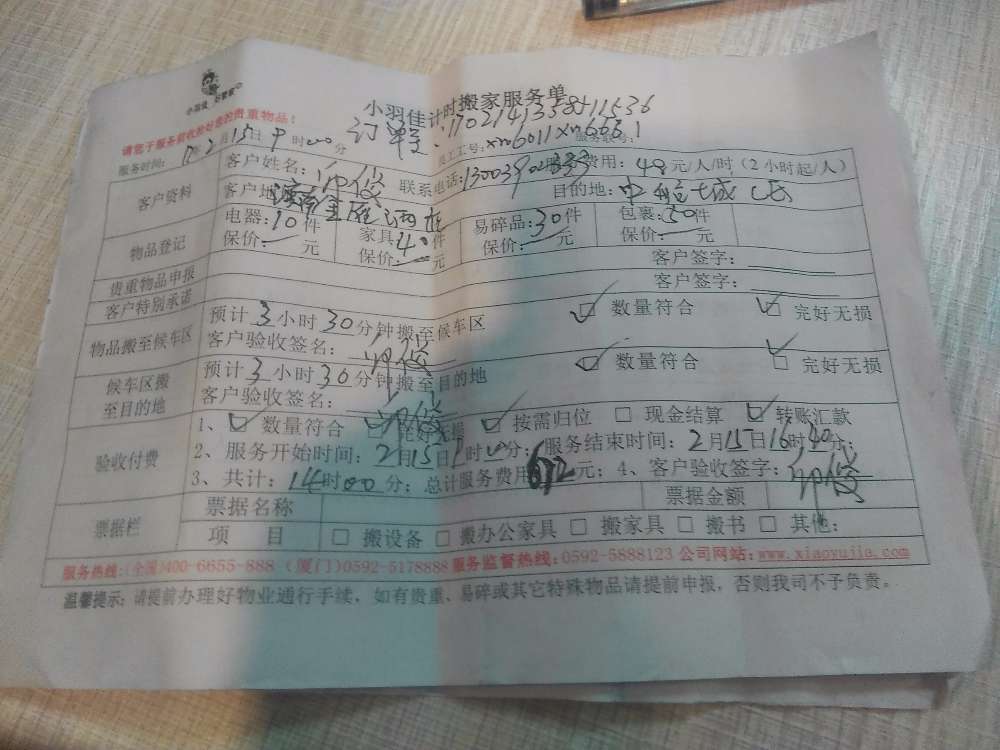 小羽佳计时搬家服务单
请您于服务前收拾好您的贵重物品！
订单:170214135841536
服务时间: 17年2月15日9时00分 员工工号:xm6011xm6661 服务联号:
客户资料 客户姓名: 联系电话: 费用: 48元/人/时（2小时起/人）
客户地 目的地:
物品登记 电器:10件 家具40件 易碎品:30件 包裹:30件
保价: 元 保价: 元 保价: 元 保价: 元
贵重物品申报 客户签字:
客户特别承诺 客户签字:
物品搬至候车区 预计3小时30分钟搬至候车区 数量符合 完好无损
客户验收签名:
候车区搬至目的地 预计3小时30分钟搬至目的地 数量符合 完好无损
客户验收签名:
验收付费 1、 数量符合 完好无损 按需归位 现金结算 转账汇款
2、服务开始时间: 2月15日 时 分; 服务结束时间: 2月15日16时40分;
3、共计: 14时00分; 总计服务费用672元; 4、客户验收签字:
票据栏 票据名称 票据金额
项 目 搬设备 搬办公家具 搬家具 搬书 其他:
服务热线:(全国)400-6655-888 (厦门)0592-5178888 服务监督热线:0592-5888123 公司网站:www.xiaoyujia.com
温馨提示: 请提前办理好物业通行手续，如有贵重、易碎或其它特殊物品请提前申报，否则我司不予负责。